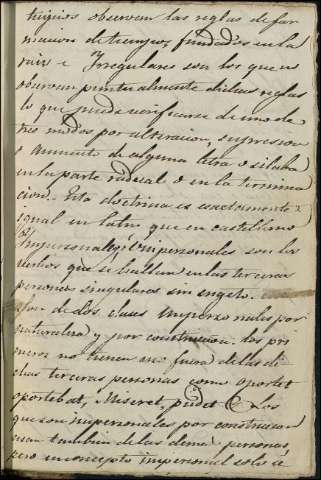 tiguos observan las reglas de for
macion de tiempos, fundados en la
raiz e Irregulares son los que no
observan puntualmente dichas reglas
lo que puede verificarse de uno de
tres modos por alteracion, supresion
o aumento de alguna letra o silaba
en la parte radical o en la termina
cion. Esta doctrina es exactamente
igual en latin que en castellano
Impersonales, Unipersonales son los
verbos que se hallan en las terceras
personas singulares sin sugeto.
de dos clases impersonales por
naturaleza y por construccion. Los pri
meros no tienen uso fuera de las di
chas terceras personas como oportet
oportebat, Miseret, pudet &. Los
que son inpersonales por construccion
usan tambien de las demas personas,
pero en concepto impersonal solo a